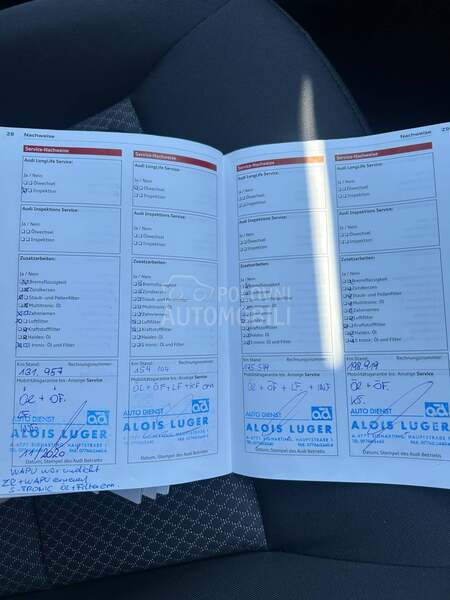 28 Nachweise
Service-Nachweise
Audi LongLife Service:
Ja / Nein
Ölwechsel
Inspektion
Audi Inspektions Service:
Ja / Nein
Ölwechsel
Inspektion
Zusatzarbeiten:
Ja / Nein
Bremsflüssigkeit
Zündkerzen
Staub- und Pollenfilter
Multitronic Öl
Zahnriemen
Luftfilter
Kraftstofffilter
Haldex Öl
tronic Öl und Filter
Km Stand: Rechnungsnummer:
131.957
Mobilitätsgarantie bis: Anzeige Service
ÖL + ÖF.
AUTO DIENST ad
ALOIS LUGER
11/2020
Datum, Stempel des Audi Betriebs
WAPU war undicht
ZR + WAPU erneuert
S-TRONIC ÖL + Filter ern.
Service-Nachweise
Audi LongLife Service:
Ja / Nein
Ölwechsel
Inspektion
Audi Inspektions Service:
Ja / Nein
Ölwechsel
Inspektion
Zusatzarbeiten:
Ja / Nein
Bremsflüssigkeit
Zündkerzen
Staub- und Pollenfilter
Multitronic Öl
Zahnriemen
Luftfilter
Kraftstofffilter
Haldex Öl
tronic Öl und Filter
Km Stand: Rechnungsnummer:
154.104
Mobilitätsgarantie bis: Anzeige Service
ÖL + ÖF + LF + KF ern
AUTO DIENST ad
ALOIS LUGER
Datum, Stempel des Audi Betriebs
Nachweise 29
Service-Nachweise
Audi LongLife Service:
Ja / Nein
Ölwechsel
Inspektion
Audi Inspektions Service:
Ja / Nein
Ölwechsel
Inspektion
Zusatzarbeiten:
Ja / Nein
Bremsflüssigkeit
Zündkerzen
Staub- und Pollenfilter
Multitronic Öl
Zahnriemen
Luftfilter
Kraftstofffilter
Haldex Öl
tronic Öl und Filter
Km Stand: Rechnungsnummer:
Mobilitätsgarantie bis: Anzeige Service
ÖL + ÖF + LF
AUTO DIENST ad
ALOIS LUGER
Datum, Stempel des Audi Betriebs
Service-Nachweise
Audi LongLife Service:
Ja / Nein
Ölwechsel
Inspektion
Audi Inspektions Service:
Ja / Nein
Ölwechsel
Inspektion
Zusatzarbeiten:
Ja / Nein
Bremsflüssigkeit
Zündkerzen
Staub- und Pollenfilter
Multitronic Öl
Zahnriemen
Luftfilter
Kraftstofffilter
Haldex Öl
tronic Öl und Filter
Km Stand: Rechnungsnummer:
198.919
Mobilitätsgarantie bis: Anzeige Service
ÖL + ÖF.
AUTO DIENST ad
ALOIS LUGER
Datum, Stempel des Audi Betriebs
POLOVNI
AUTOMOBILI